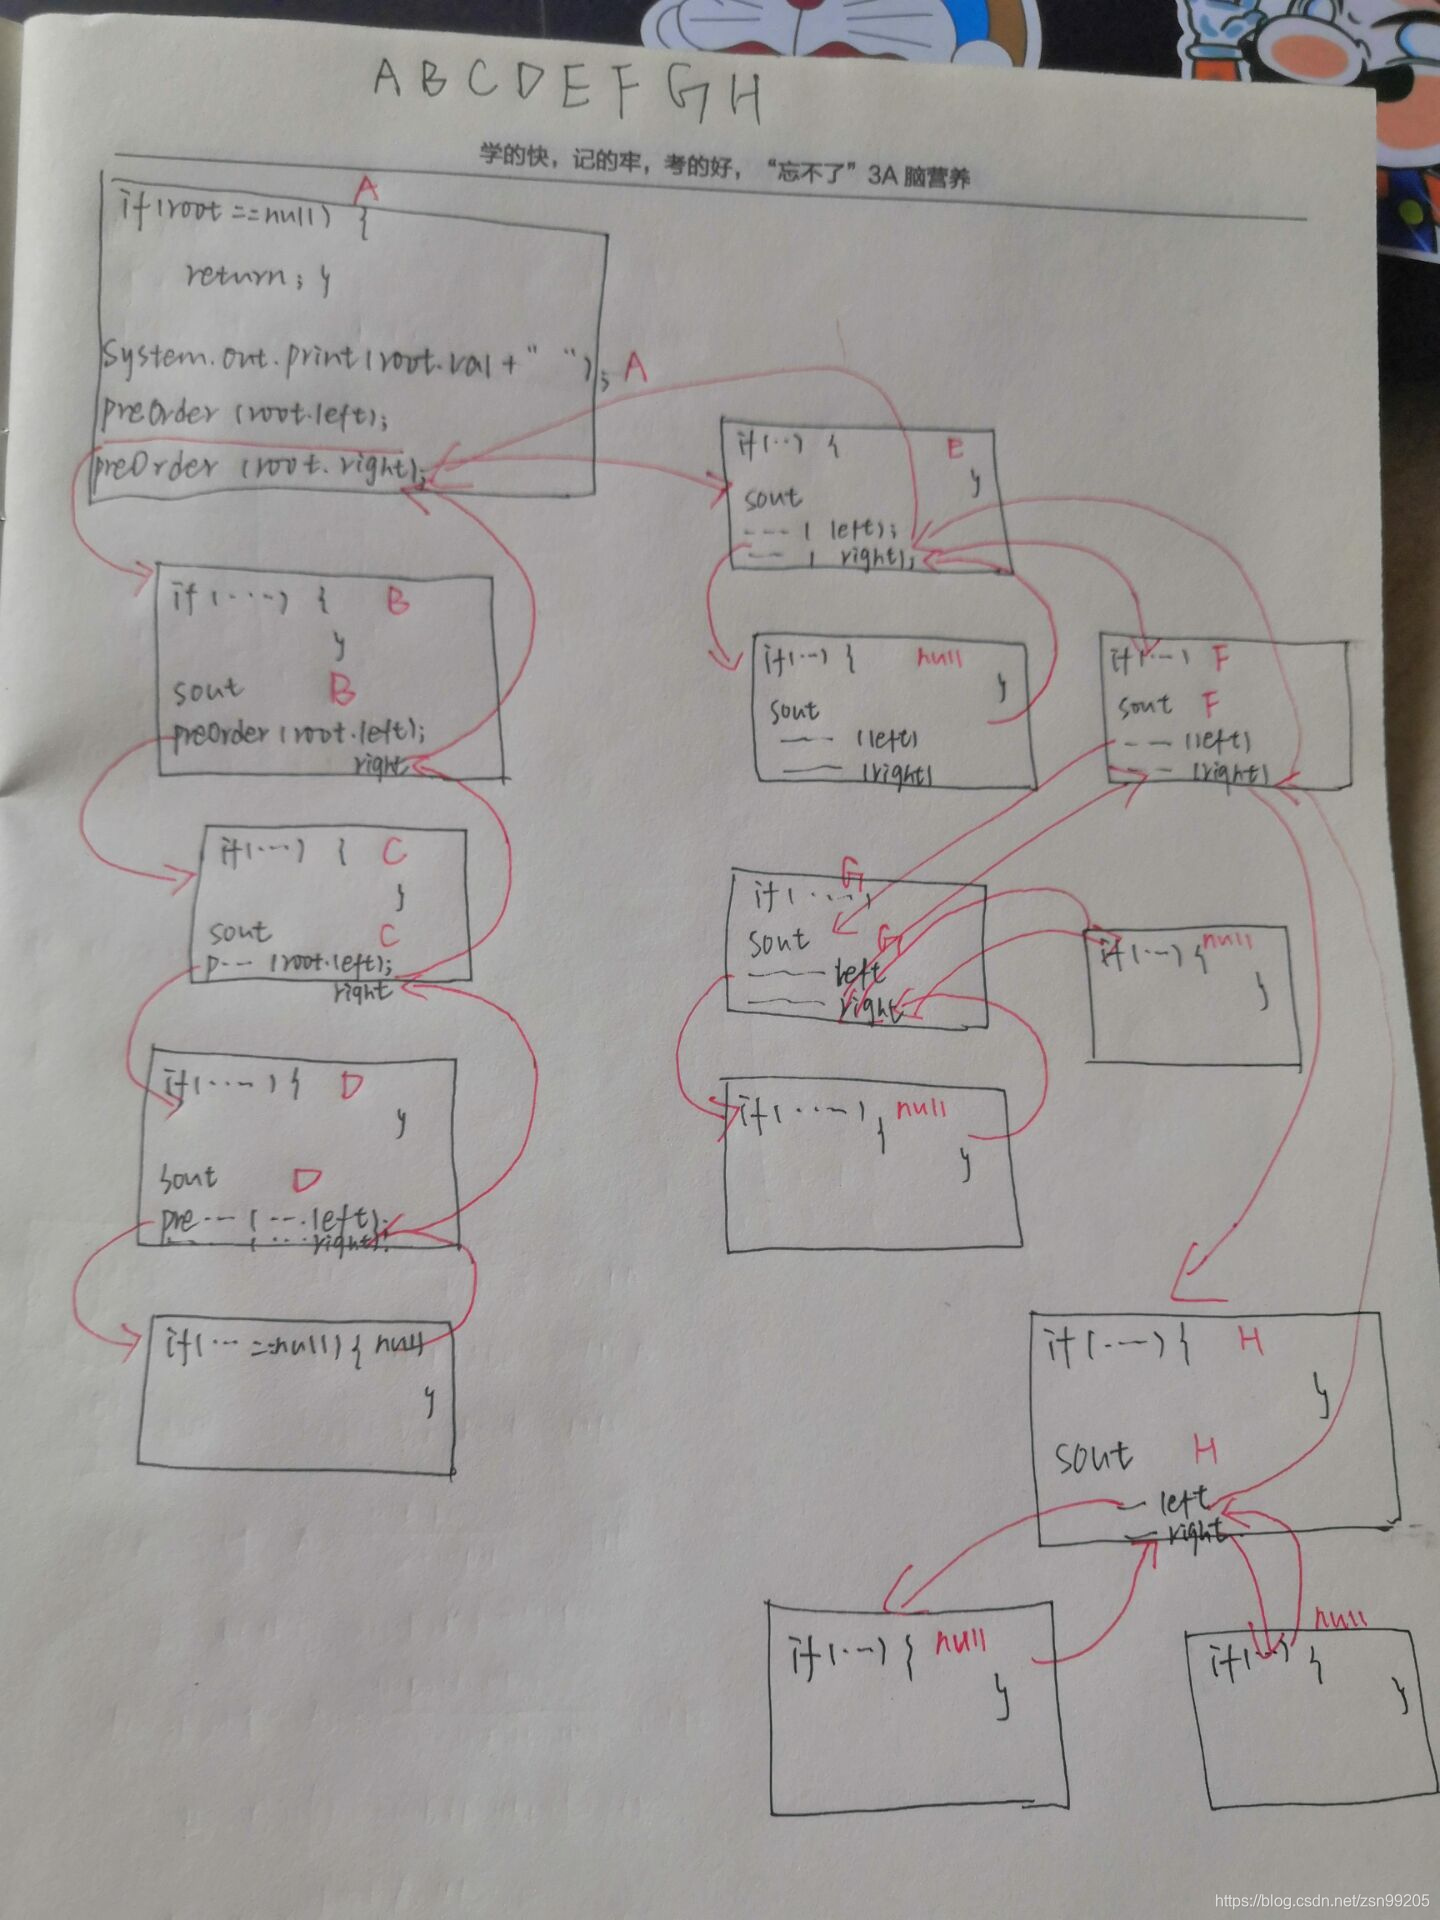 ABCDEFGH
学的快，记的牢，考的好，“忘不了”3A 脑营养
A
if(root ==null) {
return; }
System.out.print(root.val+" "); A
preOrder (root.left);
preOrder (root.right);
if(···) { B
}
sout B
preOrder(root.left);
right
if(···) { C
}
sout C
p--- (root.left);
right
if(···) { D
}
sout D
pre--- (---.left);
---- (---right);
if(··· ==null) { null
}
if(··) { E
}
sout
--- ( left);
--- ( right);
if(··) { null
}
sout
—— (left)
—— (right)
if(··) F
sout F
--- (left)
--- (right)
G
if(····)
sout G
—— left
—— right
if(···) { null
}
if(···) { null
}
if(···) { H
}
sout H
— left
— right
if(···) { null
}
null
if(··) {
}
https://blog.csdn.net/zsn99205